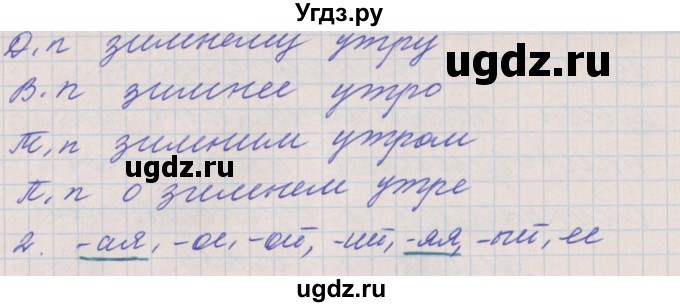 Угдз.ру
Д.п зимнему утру
ugdz.ru
В.п зимнее утро
ugdz.ru
Т.п зимним утром
ugdz.ru
П.п о зимнем утре
ugdz.ru
2. -ая, -ое, -ой, -ий, -яя, -ый, ее